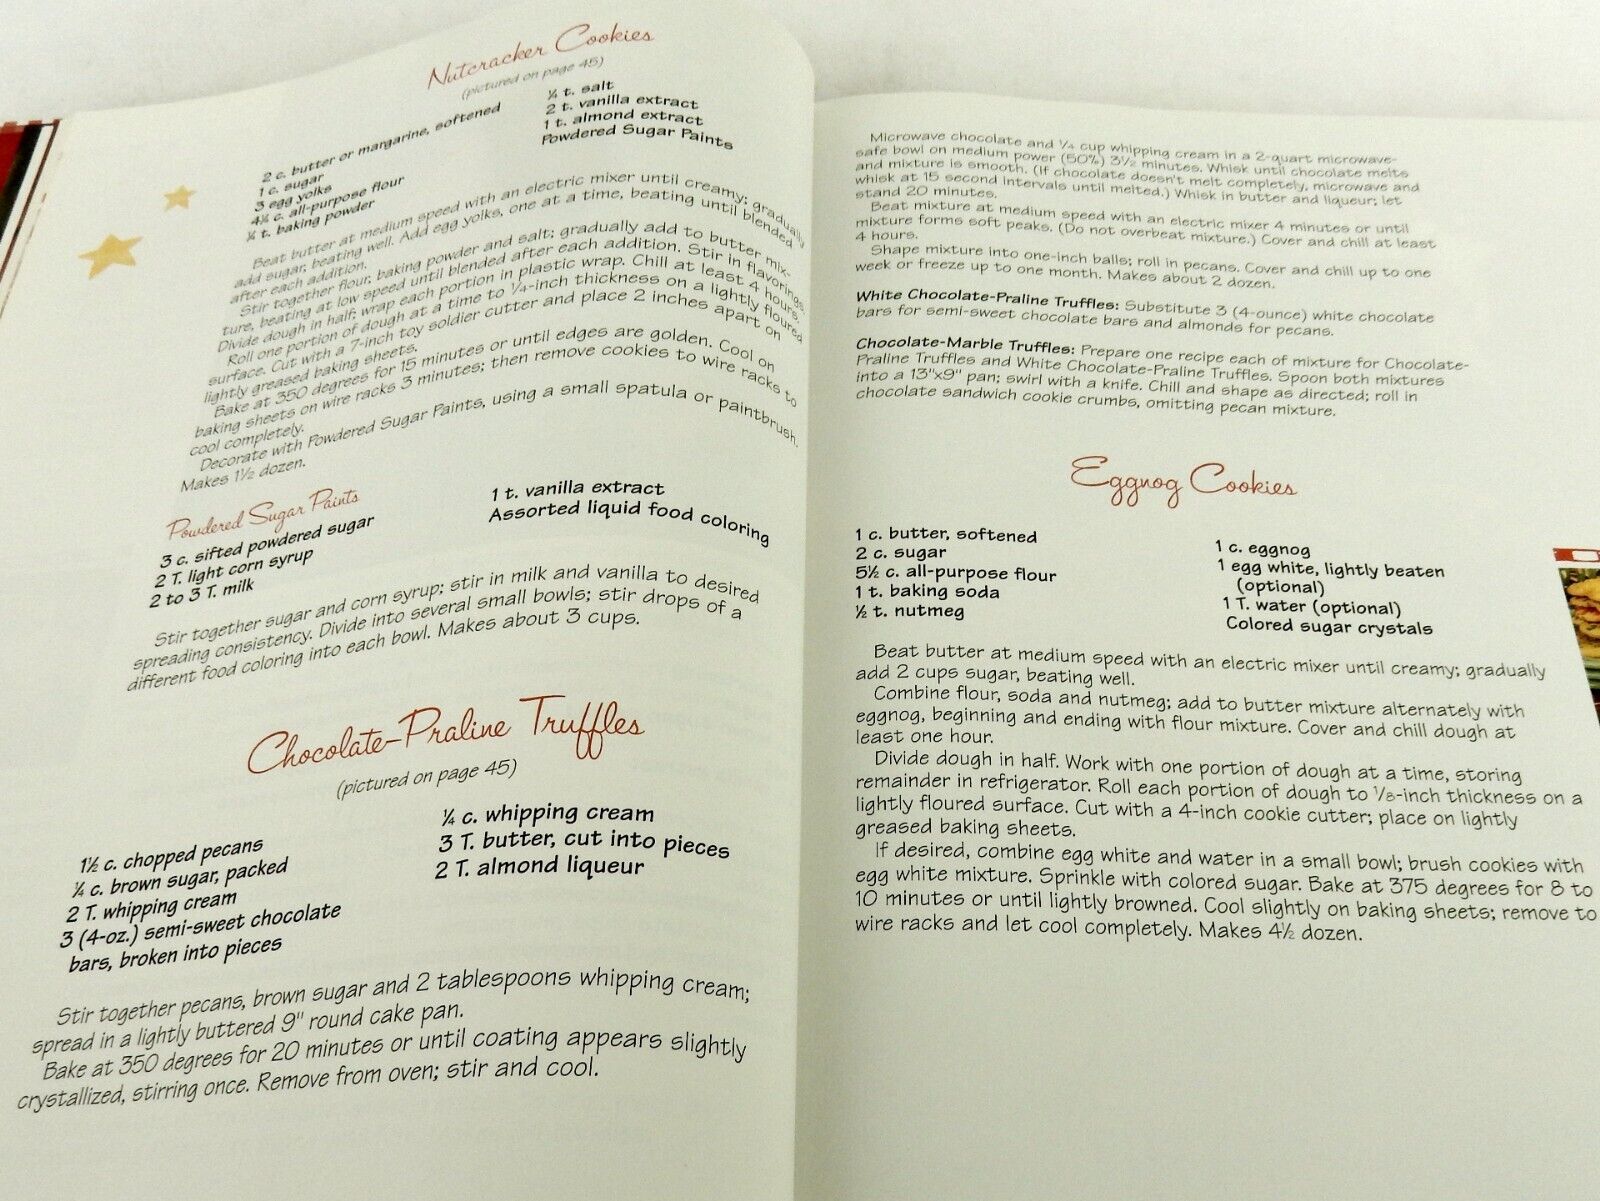 Nutcracker Cookies
(pictured on page 45)
2 c. butter or margarine, softened
1 c. sugar
3 egg yolks
4¼ c. all-purpose flour
¼ t. baking powder
¼ t. salt
2 t. vanilla extract
1 t. almond extract
Powdered Sugar Paints
Beat butter at medium speed with an electric mixer until creamy; gradually
add sugar, beating well. Add egg yolks, one at a time, beating until blended
after each addition.
Stir together flour, baking powder and salt; gradually add to butter mix-
ture, beating at low speed until blended after each addition. Stir in flavorings.
Divide dough in half; wrap each portion in plastic wrap. Chill at least 4 hours.
Roll one portion of dough at a time to ¼-inch thickness on a lightly floured
surface. Cut with a 7-inch toy soldier cutter and place 2 inches apart on
lightly greased baking sheets.
Bake at 350 degrees for 15 minutes or until edges are golden. Cool on
baking sheets on wire racks 3 minutes; then remove cookies to wire racks to
cool completely.
Decorate with Powdered Sugar Paints, using a small spatula or paintbrush.
Makes 1½ dozen.
Powdered Sugar Paints
3 c. sifted powdered sugar
2 T. light corn syrup
2 to 3 T. milk
1 t. vanilla extract
Assorted liquid food coloring
Stir together sugar and corn syrup; stir in milk and vanilla to desired
spreading consistency. Divide into several small bowls; stir drops of a
different food coloring into each bowl. Makes about 3 cups.
Chocolate-Praline Truffles
(pictured on page 45)
1½ c. chopped pecans
¼ c. brown sugar, packed
2 T. whipping cream
3 (4-oz.) semi-sweet chocolate
bars, broken into pieces
¼ c. whipping cream
3 T. butter, cut into pieces
2 T. almond liqueur
Stir together pecans, brown sugar and 2 tablespoons whipping cream;
spread in a lightly buttered 9" round cake pan.
Bake at 350 degrees for 20 minutes or until coating appears slightly
crystallized, stirring once. Remove from oven; stir and cool.
Microwave chocolate and ¼ cup whipping cream in a 2-quart microwave-
safe bowl on medium power (50%) 3½ minutes. Whisk until chocolate melts
and mixture is smooth. (If chocolate doesn't melt completely, microwave and
whisk at 15 second intervals until melted.) Whisk in butter and liqueur; let
stand 20 minutes.
Beat mixture at medium speed with an electric mixer 4 minutes or until
mixture forms soft peaks. (Do not overbeat mixture.) Cover and chill at least
4 hours.
Shape mixture into one-inch balls; roll in pecans. Cover and chill up to one
week or freeze up to one month. Makes about 2 dozen.
White Chocolate-Praline Truffles: Substitute 3 (4-ounce) white chocolate
bars for semi-sweet chocolate bars and almonds for pecans.
Chocolate-Marble Truffles: Prepare one recipe each of mixture for Chocolate-
Praline Truffles and White Chocolate-Praline Truffles. Spoon both mixtures
into a 13"x9" pan; swirl with a knife. Chill and shape as directed; roll in
chocolate sandwich cookie crumbs, omitting pecan mixture.
Eggnog Cookies
1 c. butter, softened
2 c. sugar
5½ c. all-purpose flour
1 t. baking soda
½ t. nutmeg
1 c. eggnog
1 egg white, lightly beaten
(optional)
1 T. water (optional)
Colored sugar crystals
Beat butter at medium speed with an electric mixer until creamy; gradually
add 2 cups sugar, beating well.
Combine flour, soda and nutmeg; add to butter mixture alternately with
eggnog, beginning and ending with flour mixture. Cover and chill dough at
least one hour.
Divide dough in half. Work with one portion of dough at a time, storing
remainder in refrigerator. Roll each portion of dough to ⅛-inch thickness on a
lightly floured surface. Cut with a 4-inch cookie cutter; place on lightly
greased baking sheets.
If desired, combine egg white and water in a small bowl; brush cookies with
egg white mixture. Sprinkle with colored sugar. Bake at 375 degrees for 8 to
10 minutes or until lightly browned. Cool slightly on baking sheets; remove to
wire racks and let cool completely. Makes 4½ dozen.